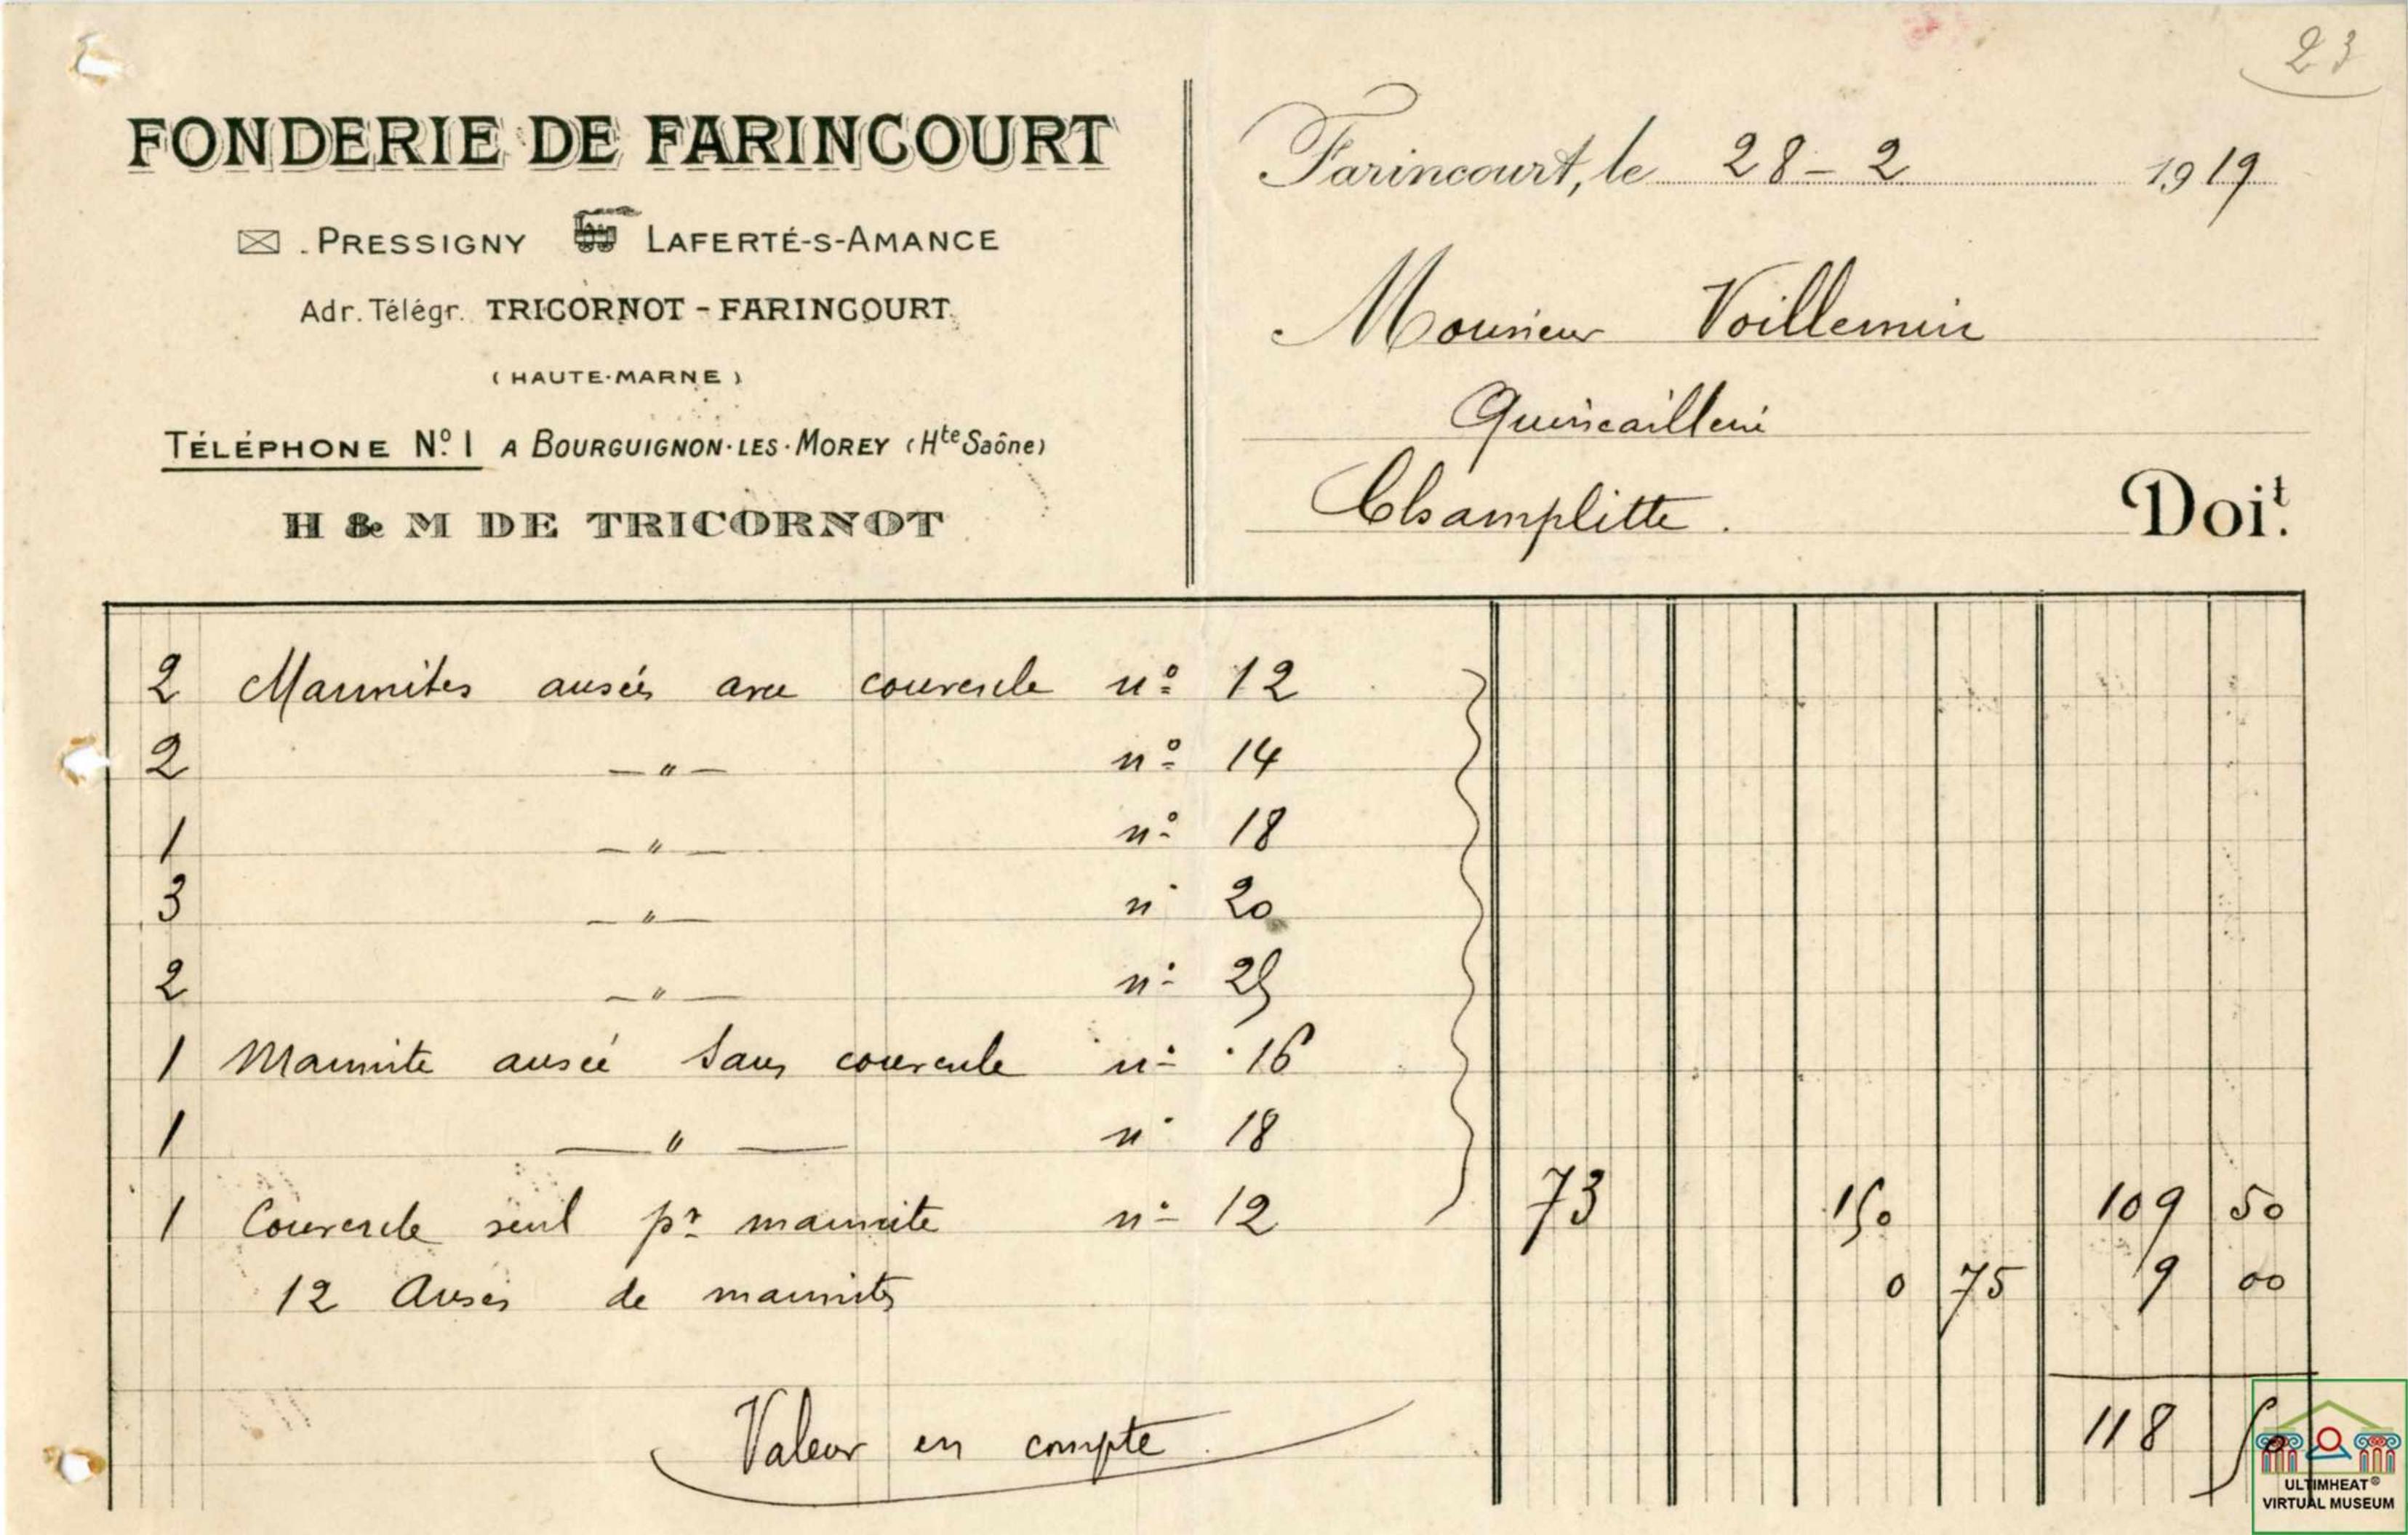 23
FONDERIE DE FARINCOURT
PRESSIGNY LAFERTÉ-S-AMANCE
Adr. Télégr. TRICORNOT - FARINCOURT.
(HAUTE-MARNE)
TÉLÉPHONE N° 1 A BOURGUIGNON-LES-MOREY (Hte Saône)
H & M DE TRICORNOT
Farincourt, le 28 - 2 1919
Monsieur Voillemin
Quincaillerie
Champlitte.
Doit.
2 Marmites ansées avec couvercle n° 12
2 —"— n° 14
1 —"— n° 18
3 —"— n° 20
2 —"— n° 25
1 Marmite ansée sans couvercle n° 16
1 —"— n° 18
1 Couvercle seul pr marmite n° 12 73 150 109 50
12 Anses de marmites 0 75 9 00
Valeur en compte 118 50
ULTIMHEAT®
VIRTUAL MUSEUM